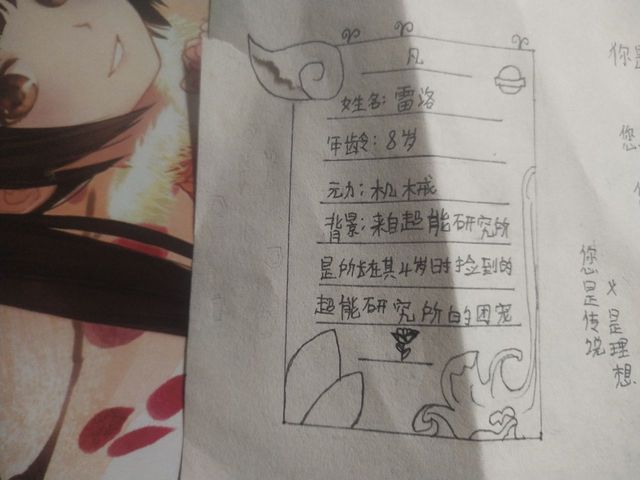 凡
姓名:雷洛
年龄:8岁
元力:机械
背景:来自超能研究所
是所长在其4岁时捡到的
超能研究所的团宠
你是
您
您是传说
又是理想